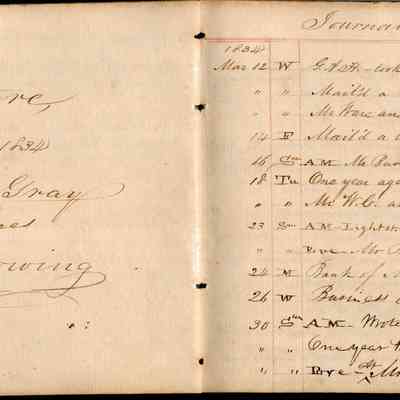 re,
1834
Gray
nes
owing
Journa
1834
Mar 12 W G.A.H. - wok
" " Mail'd a
" " Mr Ware and
14 F Mail'd a
16 Sun AM Mr
18 Tu One year ago
" " Mr W.C. a
23 Sun AM Lightst
" " Eve - Mr
24 M Bank of
26 W Business
30 Sun AM - Wrote
" " One year
" " Eve - At Mr